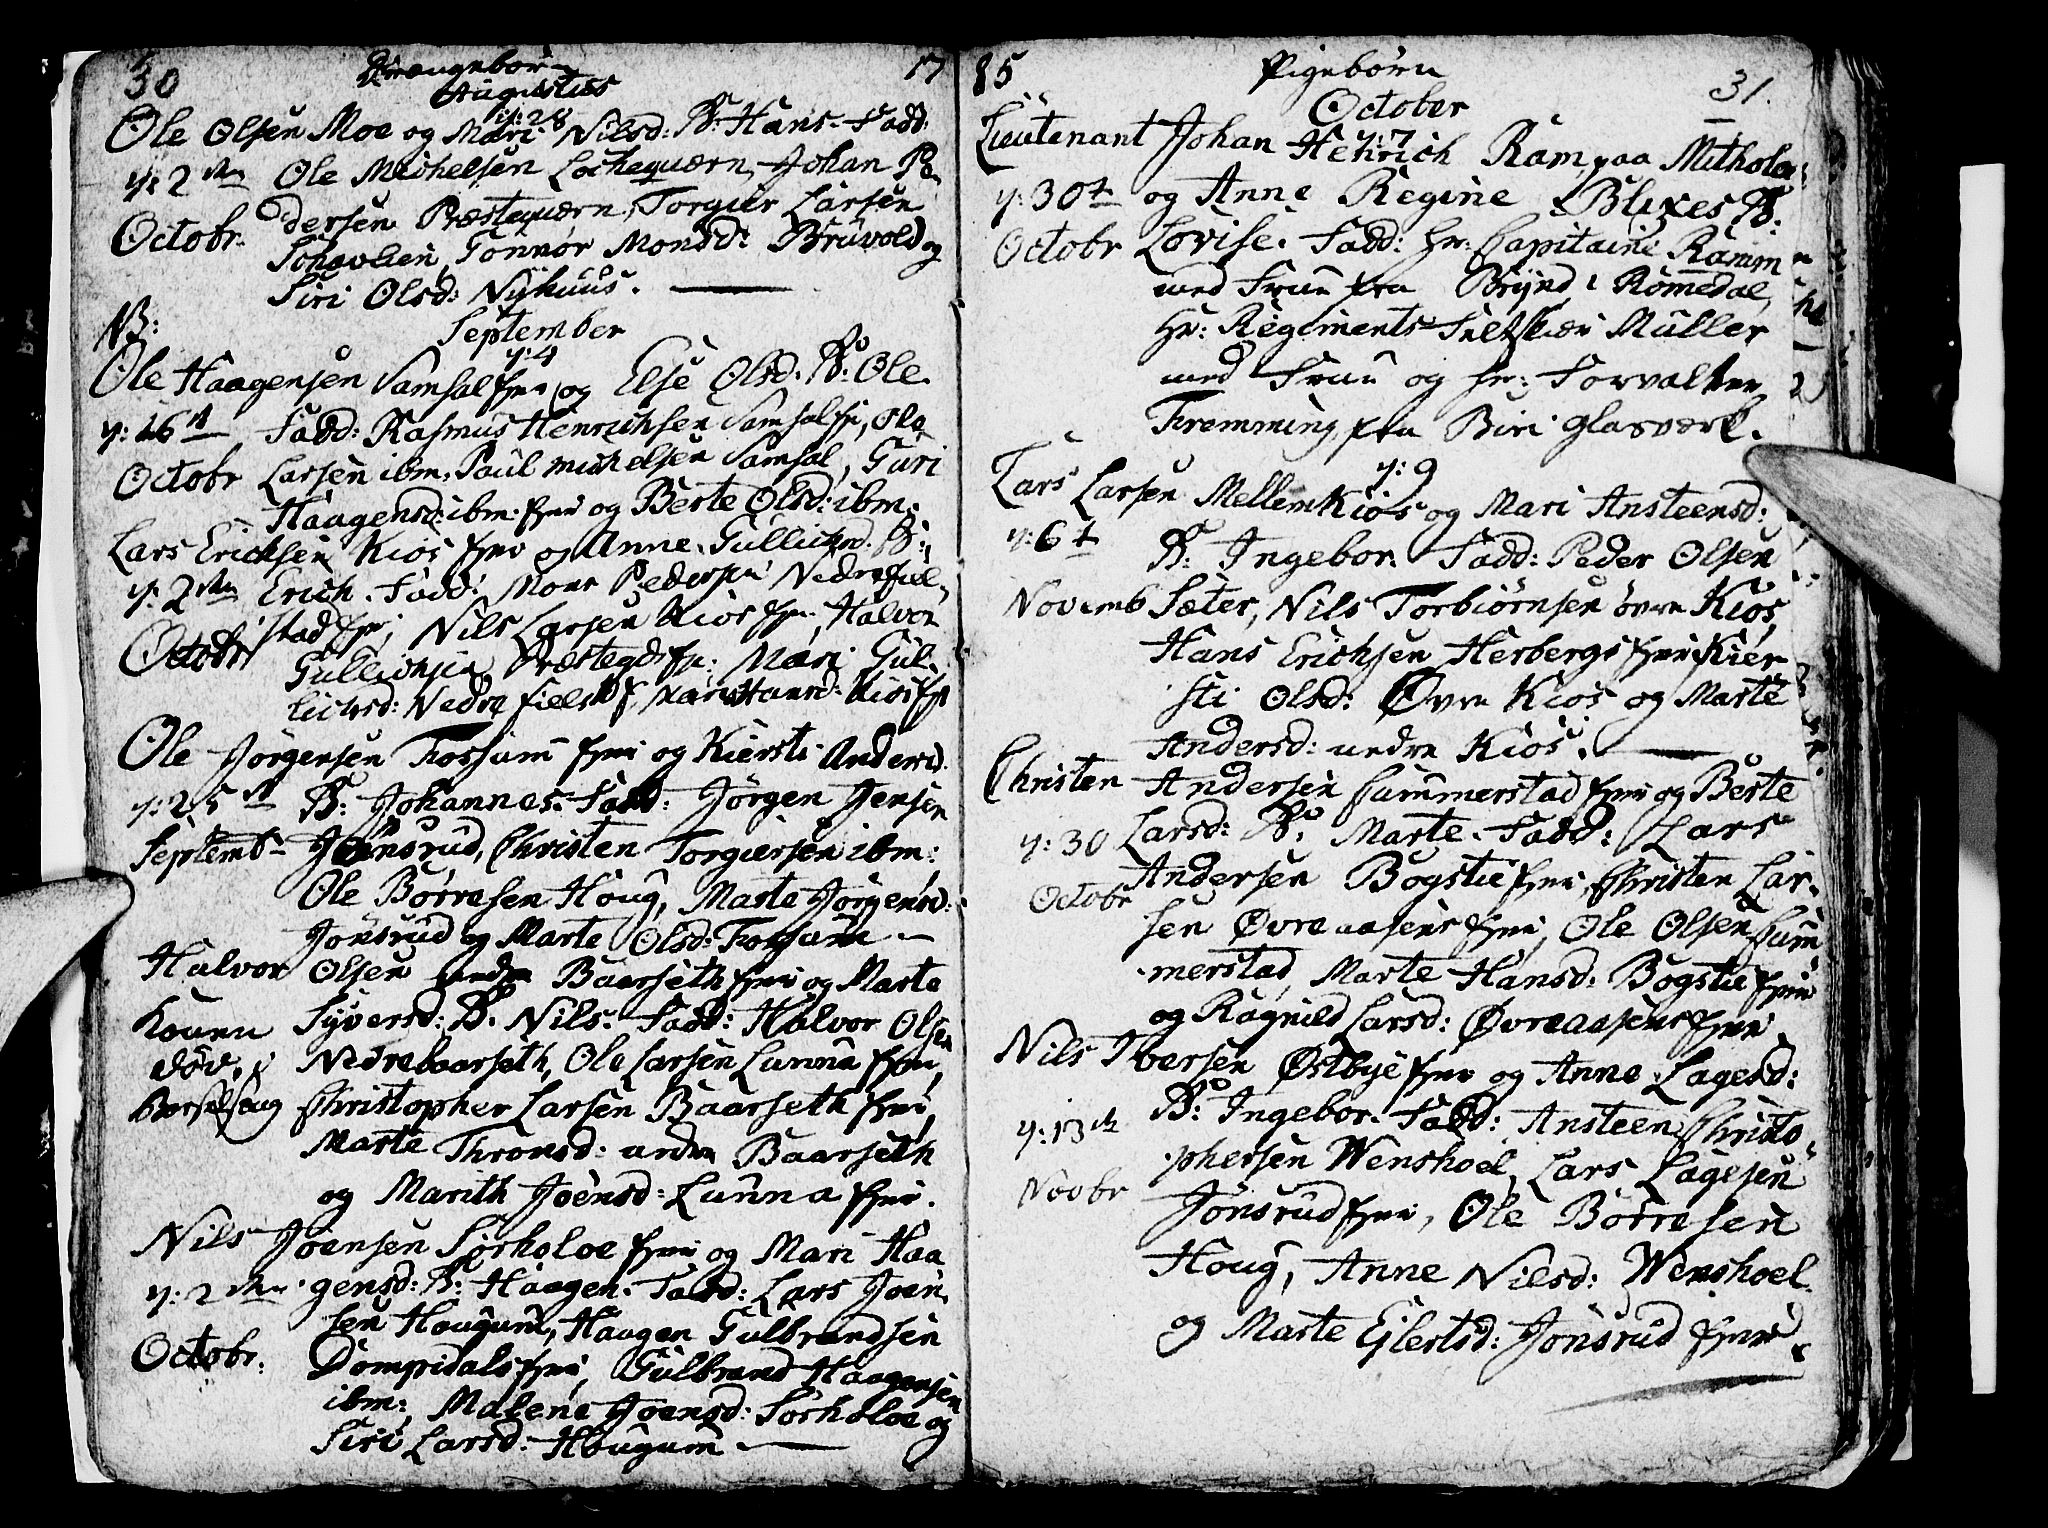 30 Drængebørn 17
Augustus
y: 28
Ole Olsen Moe og Mari Nilsd: B: Hans. Fadd:
y: 2den Ole Michelsen Lochequærn, Johan Pe
Octobr. dersen Præstequærn, Torgier Larsen
Gonnør Monsd: Bruvold og
Siri Olsd: Nyhuus.
NB:
September
y: 4
Ole Haagensen Samsal fier og Else Olsd: B: Ole
y: 16t Fadd: Rasmus Henrichsen Samsal fr, Ole
Octobr Larsen ibm, Paul Michelsen Samsal, Guri
Haagensd: ibm: fier og Berte Olsd: ibm:
Lars Erichsen Kios fier og Anne Gullichsd: B:
y: 2den Erich. Fadd: Mons Pedersen Nedrefiel
Octobr stad fr, Nils Larsen Kios fr: Halvor
Gullichsen Præstegd fr: Mari Gul-
lichsd: Nedre fielst fr Kari Hansd: Kios fr
Ole Jørgensen Fossum fier og Kiersti Andersd.
y: 25t B: Johannes. Fadd: Jørgen Jensen
Septemb Jønsrud, Christen Torgiersen ibm:
Ole Børresen Houg, Marte Jørgensd:
Jønsrud og Marte Olsd: Fossum
Halvor Olsen nedre Baarseth fier og Marte
Konen Syversd: B. Nils. Fadd: Halvor Olsen
død i Nedrebaarseth, Ole Larsen Lunna fier,
Barselseng Christopher Larsen Baarseth fier,
Marte Thronsd: nedre Baarseth
og Marith Joensd: Lunna fier.
Nils Joensen Sørholoe fier og Mari Haa
y: 2den gensd: B: Haagen. Fadd: Lars Joen
Octobr. sen Hougum, Haagen Gulbrandsen
Dompidals fier, Gulbrand Haagensen
ibm:, Malene Joensd: Sørholoe og
Siri Larsd: Hougum
85 Pigebørn 31.
October
y: 7
Lieutenant Johan Henrich Ram, paa Mitholoe
y: 30t og Anne Regine Blixes B:
Octobr Lovise. Fadd: Hr: Capitaine Ramm
med Frue fra Brynd i Romedal,
Hr: Regiments Feltskiær Müller
med Frue og Hr: Forvalter
Fremming fra Biri Glasværk.
y: 9
Lars Larsen Mellem Kios og Mari Ansteensd:
y: 6t B: Ingebor. Fadd: Peder Olsen
Novemb Sæter, Nils Torbiørnsen øvre Kios,
Hans Erichsen Herbergs fier Kier
sti Olsd: Øvre Kios og Marte
Andersd: nedre Kios.
Christen Andersen Summerstad fier og Berte
y: 30 Larsd: B: Marte. Fadd: Lars
Octobr Andersen Bogstie fier, Christen Lar-
sen Øvreaasens fier, Ole Olsen Sum
merstad, Marte Hansd: Bogstie fier
og Ragnild Larsd: Øvreaasens fier
Nils Iversen Østbye fier og Anne Lagesd:
y: 13de B: Ingebor. Fadd: Ansteen Christo
Novbr phersen Wenshoel, Lars Lagesen
Jønsrud fier, Ole Børresen
Houg, Anne Nilsd: Wenshoel
og Marte Ejlertsd: Jønsrud fier